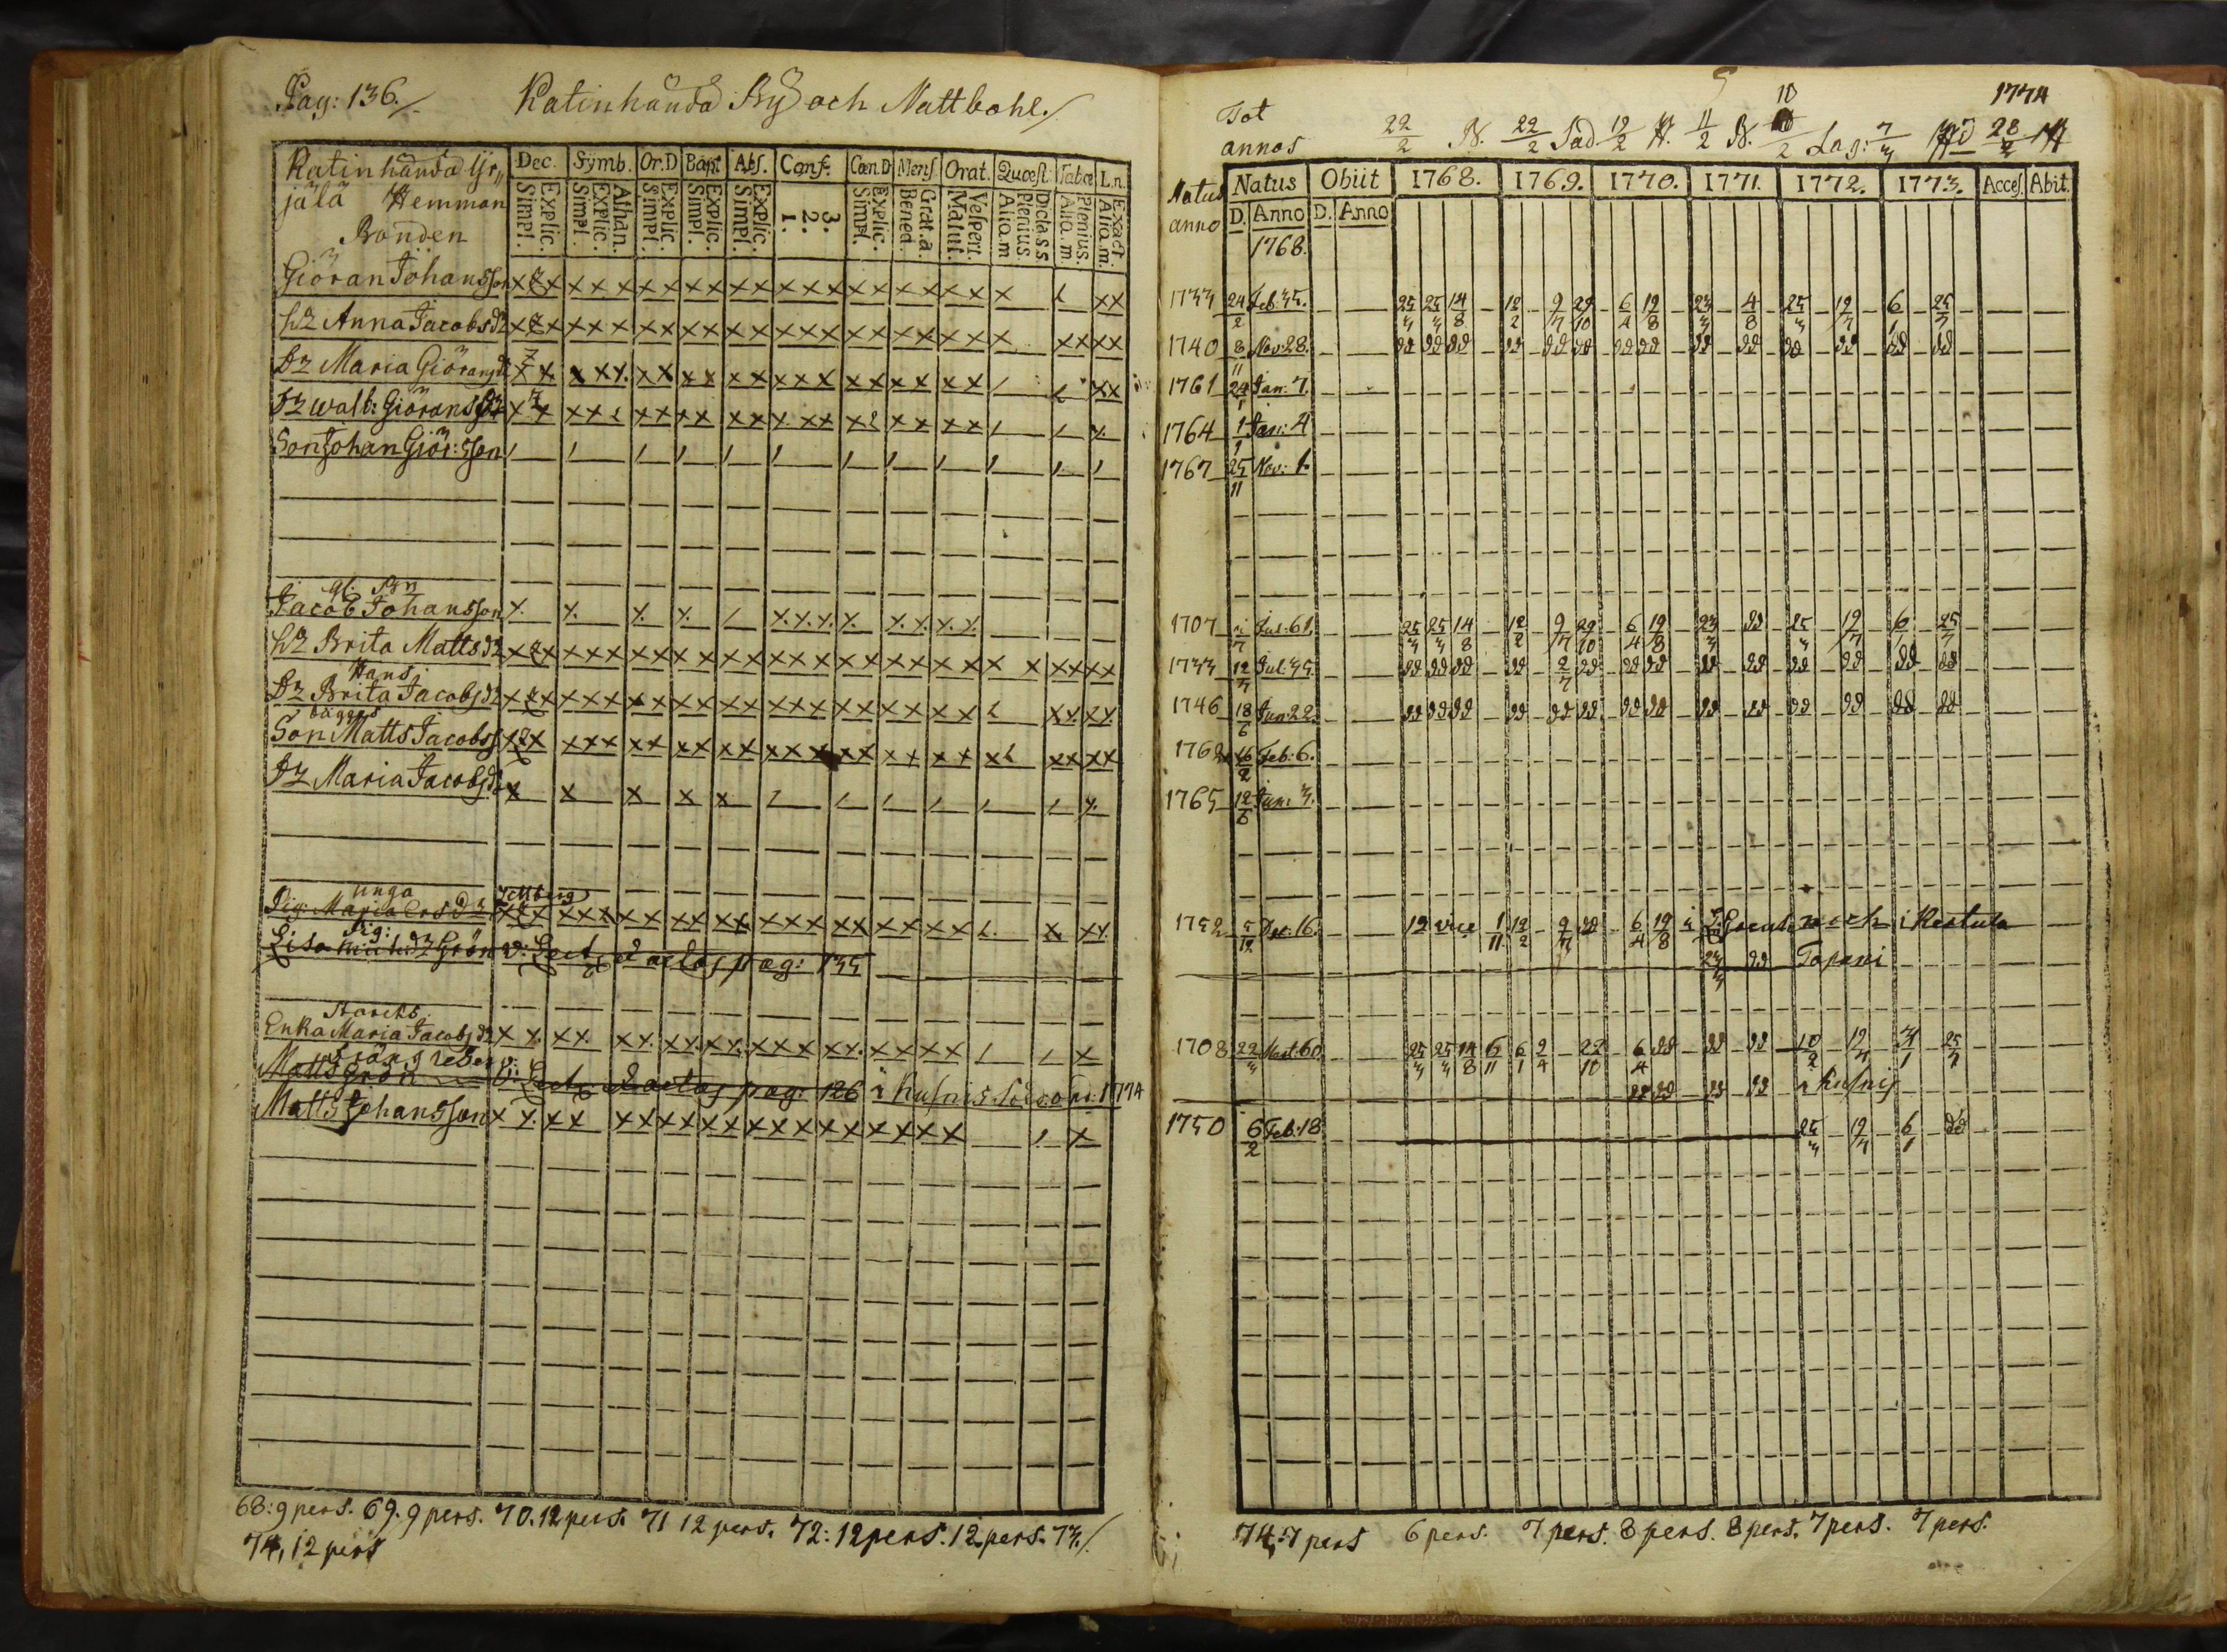 Pag: 136./ Katinhända By och Nattbohl./
Katinhända Yr„
jälä Hemman
Bonden
Dec. Symb. Or.D Bapt Abs. Conf. Cœn.D Mens. Orat. Quæst. Tabœ L.n.
Explic. Simpl. Athan. Explic. Simpl. Explic. Simpl. Explic. Simpl. Explic. Simpl. 3. 2. 1. Explic. Simpl. Grat.a. Bened. Vespert. Matut. Dicta.s.s. Plenius. Aliq.m. Plenius. Aliq.m. Exact. Aliq.m.
Giöran Johansson
h3 Anna Jacobsd3
D3 Maria Giöransd3
D3 Walb: Giöransd3
Son Johan Giör:sson
gl. Bn
Jacob Johansson
h3 Brita Mattsd3
Hans
D3 Brita Jacobsd3
bägges
Son Matts Jacobss
D3 Maria Jacobsd3
unga
Pig: Maria Ersd3
Pig:
Lisa Mich:d3 Grön v: Sect. 2 ætas pag: 135
Enka Maria Jacobsd3
Matts Grön v: Sect. 2 ætas pag: 126 i Kusnis 1774
Matts Johansson
68: 9 pers. 69. 9 pers. 70. 12 pers. 71 12 pers. 72: 12 pers. 12 pers. 73./
74, 12 pers
1774
Tot
annos 22/2 N. 22/2 Sad 12/2 H. 11/2 N. 10/2 Lag: 7/3 28/2
Natus
anno
Natus Obiit 1768. 1769. 1770. 1771. 1772. 1773. Acces. Abit.
D. Anno D. Anno
1768.
1733 24/2 Feb: 35. 25/3 25/3 14/8 12/2 9/7 29/10 6/4 19/8 23/3 4/8 25/3 12/7 6/1 25/7
1740 8/11 Nov: 28. dd dd dd dd dd dd dd dd dd dd dd dd dd dd
1761 24/1 Jan: 7.
1764 1/1 Jan: 4
1767 25/11 Nov: 1.
1707 Jul: 61. 25/3 25/3 14/8 12/2 9/7 29/10 6/4 19/8 23/3 dd 25/3 12/7 6/1 25/7
1733 12/7 Jul: 35. dd dd dd dd 2/7 dd dd dd dd dd dd dd dd dd
1746 18/6 Jun: 22. dd dd dd dd dd dd dd dd dd dd dd dd dd dd
1762 16/2 Feb: 6.
1765 12/6 Jun: 3.
1752 5/12 Dec: 16. 19 vice 1/11 12/2 9/7 dd 6/4 19/8 i Kestula
23/3 dd Tapani
1708 22/3 Mart: 60. 25/3 25/3 14/8 6/11 6/1 2/4 22/10 6/4 dd dd dd 10/2 12/7 25/7
dd dd dd dd i Kusnis
1750 6/2 Feb: 18. 25/3 12/7 6/1 dd
74: 7 pers 6 pers. 7 pers. 8 pers. 8 pers. 7 pers. 7 pers.